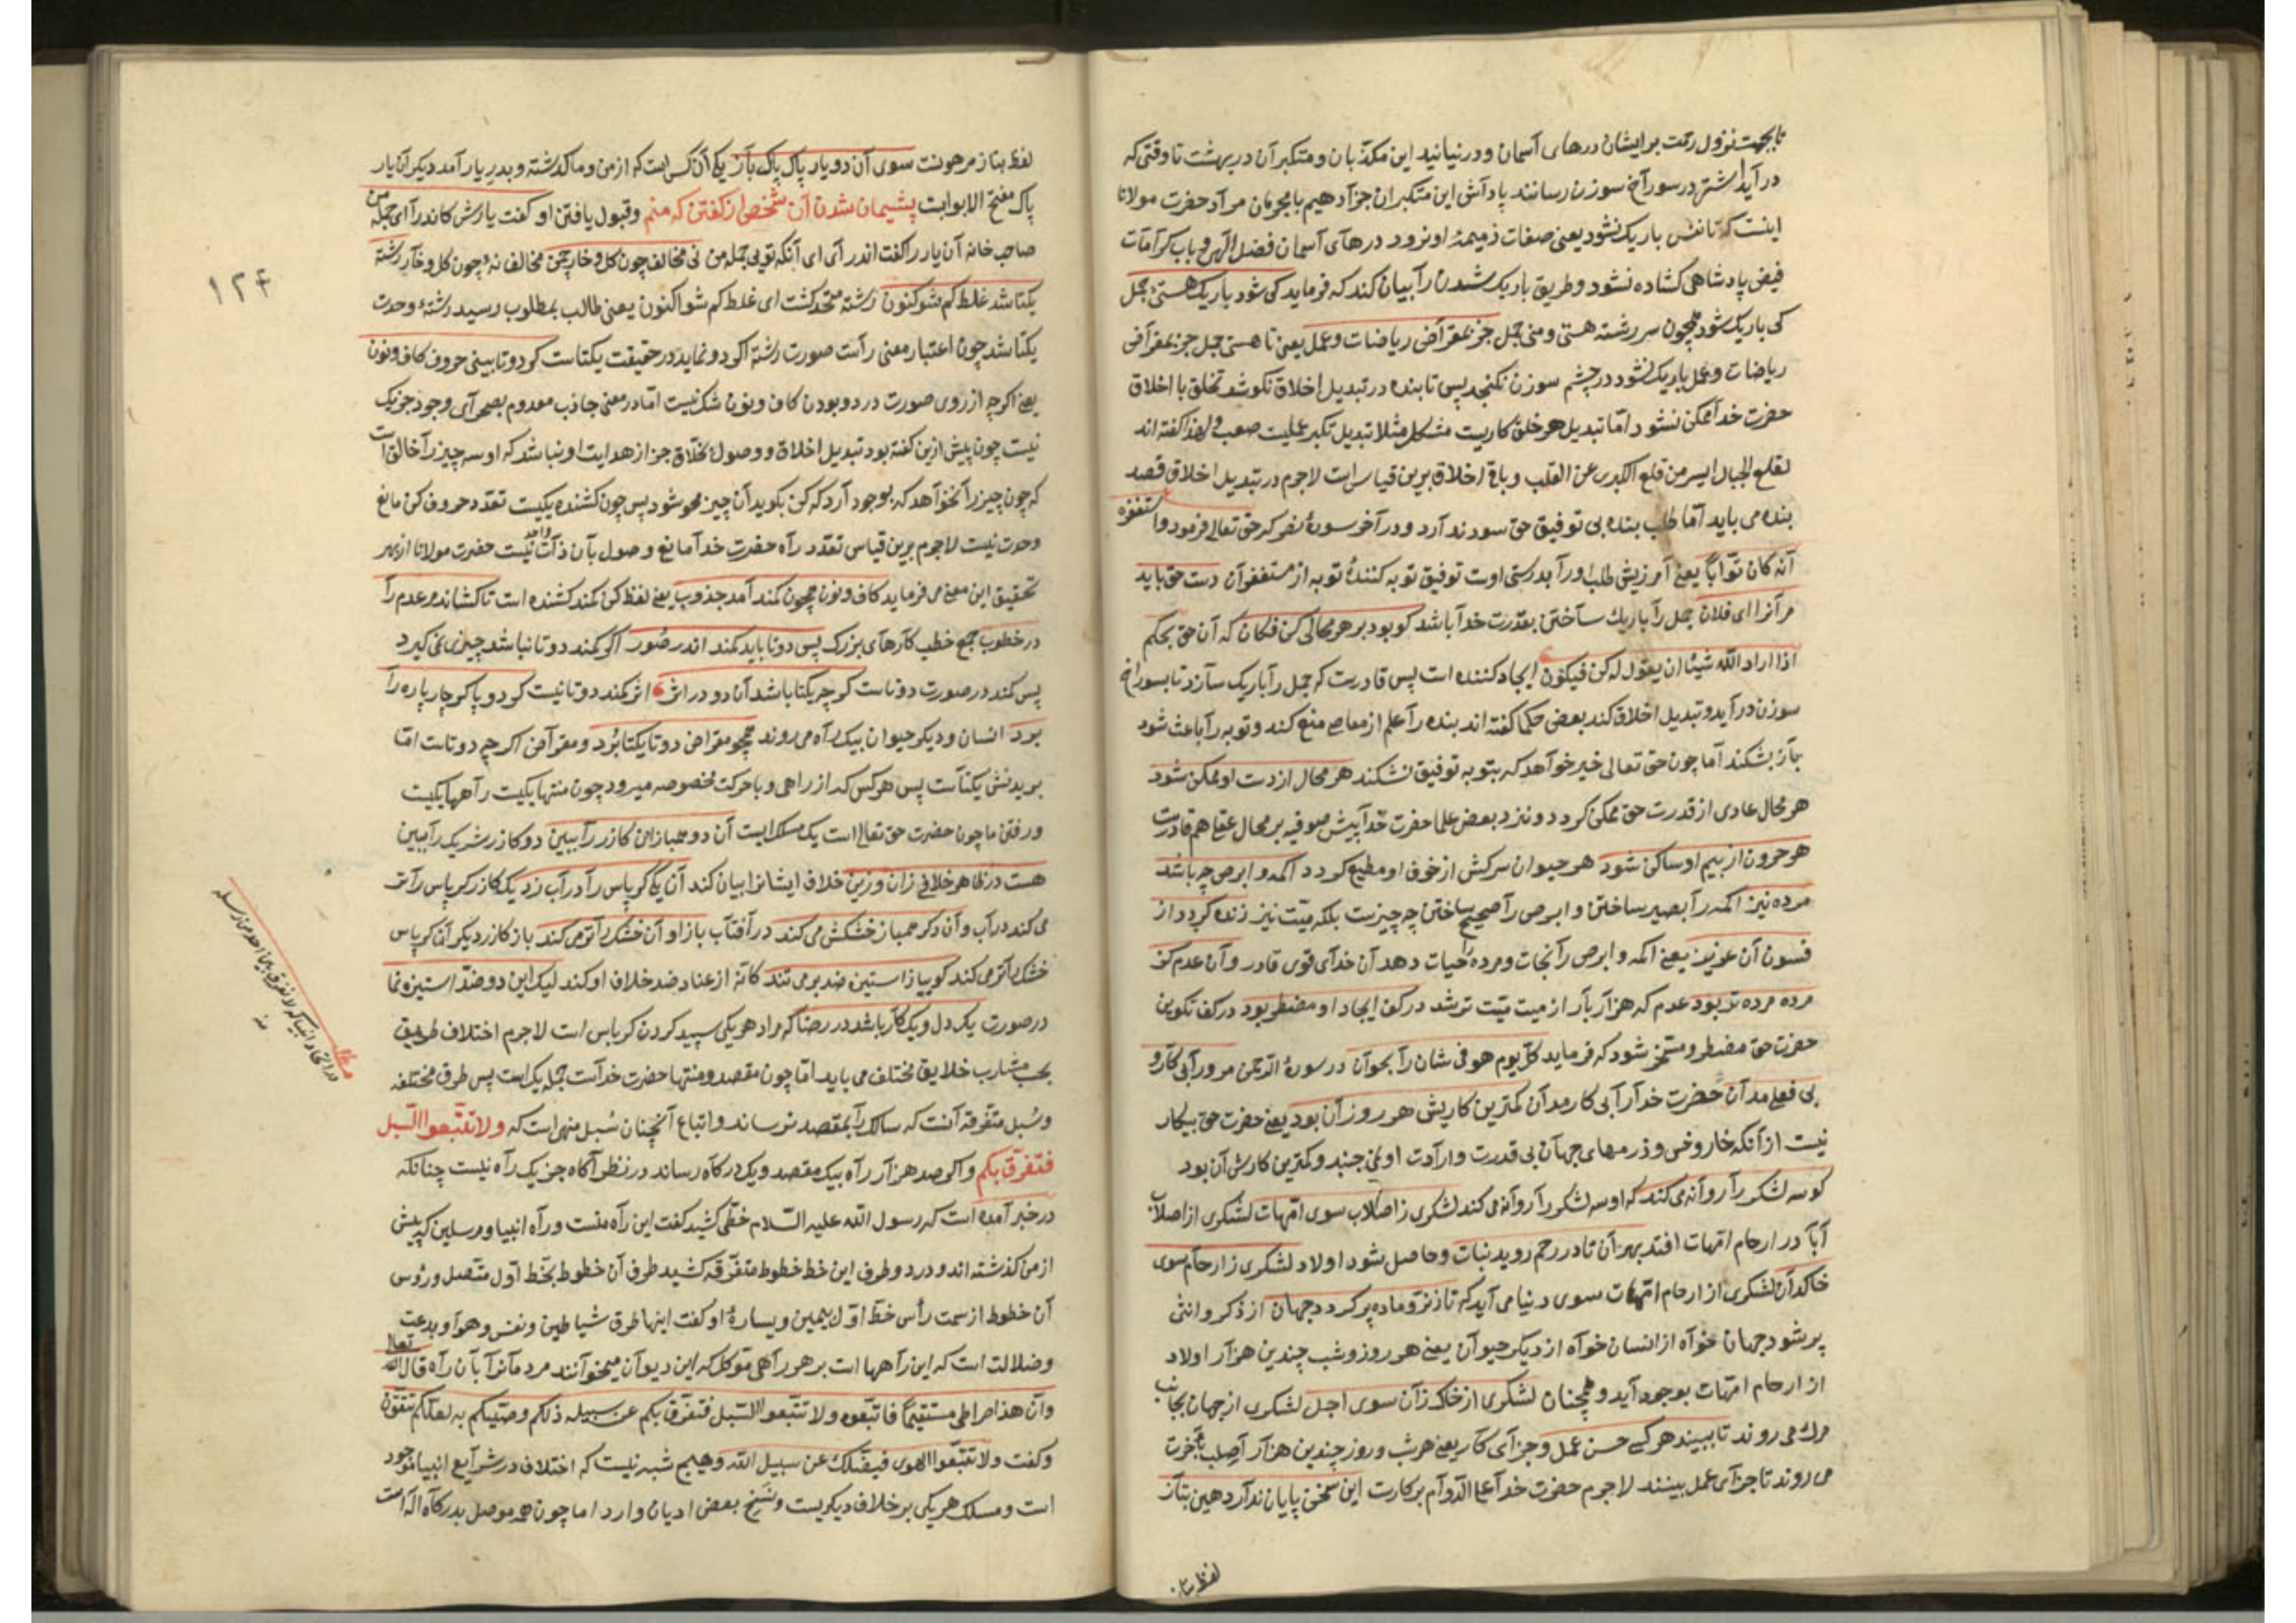 تا بجهت نزول رحمت بر ایشان درهای آسمان و در نیایند این مکذبان و متکبران در بهشت تا وقتی که
در آید اشتر در سوراخ سوزن رسانند پاداش این متکبران جزا دهیم بامجرمان مراد حضرت مولانا
اینست که تا نفس باریک نشود یعنی صفات ذمیمهٔ او نرود درهای آسمان فضل الهی و باب کرامات
فیض پادشاهی کشاده نشود و طریق باریک شدن را بیان کند که فرماید کی شود باریک هستیٔ جمل
کی باریک شود همچون سر رشته هستی و منی جمل جز بمقراض ریاضات و عمل یعنی تا هستی جمل جز بمقراض
ریاضات و عمل باریک نشود در چشم سوزن نکنجد پس تا بنده در تبدیل اخلاق نکوشد تخلق با اخلاق
حضرت خدا ممکن نشود اما تبدیل هر خلق کاریست مشکل مثلا تبدیل تکبر عملیست صعب و لهذا کفته اند
لقلع الجبال ایسر من قلع الکبر عن القلب و باقی اخلاق برین قیاس است لاجرم در تبدیل اخلاق قصد
بنده می باید اما طلب بنده بی توفیق حق سود ندارد و در آخر سورهٔ نصر که حق تعالی فرمود و استغفره
انه کان توابا یعنی آمرزیش طلب او را بدرستی اوست توفیق توبه کنندهٔ توبه از مستغفران دست حق باید
مر آنرا ای فلان جمل را باریک ساختن بقدرت خدا باشد کو بود بر هر محالی کن فکان که آن حق بحکم
اذا اراد الله شیئا ان یقول له کن فیکون ایجاد کننده است پس قادرست که جمل را باریک سازد تا بسوراخ
سوزن در آید و تبدیل اخلاق کند بعض حکما کفته اند بنده را علم از معاصی منع کند و توبه را باعث شود
باز بشکند اما چون حق تعالی خیر خواهد که بتوبه توفیق نشکند هر محال از دست او ممکن شود
هر محال عادی از قدرت حق ممکن کردد و نزد بعض علما حضرت خدا پیش صوفیه بر محال عقلی هم قادرست
هر حرون از بیم او ساکن شود هر حیوان سرکش از خوف او مطیع کردد اکمه و ابرص چه باشد
مرده نیز اکمه را بصیر ساختن و ابرص را صحیح ساختن چه چیزست بلکه میت نیز زنده کردد از
فسون آن عزیز یعنی اکمه و ابرص را نجات و مرده را حیات دهد آن خدای قوی قادر و آن عدم کز
مرده مرده تر بود عدم که هزار بار از میت میت تر شد در کف ایجاد او مضطر بود در کف تکوین
حضرت حق مضطر و مسخر شود که فرماید کل یوم هو فی شان را بخوان در سورهٔ الرحمن مر ورا بی کار و
بی فعلی مدان حضرت خدا را بی کار مدان کمترین کاریش هر روز آن بود یعنی حضرت حق بیکار
نیست از آنکه خار و خس و ذرهای جهان بی قدرت و ارادت او نمی جنبد و کمترین کارش آن بود
کو سه لشکر را روانه می کند که او سه لشکر را روانه می کند لشکری ز اصلاب سوی امهات لشکری از اصلاب
آبا در ارحام امهات افتد بهر آن تا در رحم روید نبات و حاصل شود اولاد لشکری ز ارحام سوی
خاکدان لشکری از ارحام امهات سوی دنیا می آید که تا ز نر و ماده پر کردد جهان از ذکر و انثی
پر شود جهان خواه از انسان خواه از دیکر حیوان یعنی هر روز و شب چندین هزار اولاد
از ارحام امهات بوجود آید و همچنان لشکری از خاک زان سوی اجل لشکری از جهان بجانب
مرک می روند تا ببیند هر کسی حسن عمل و جزای کار یعنی هر شب و روز چندین هزار آخرت
می روند تا جزای عمل بینند لاجرم حضرت خدا علی الدوام بر کارست این سخن پایان ندارد هین بتاز
لفظ بتاز
لفظ بتاز مرهونست سوی آن دو یار پاک پاک باز یکی آن کس است که از من و ما کذشته و بدر یار آمد دیکر آن یار
پاک مفتح الابوابست پشیمان شدن آن شخص از کفتن که منم و قبول یافتن او کفت یارش کاندر آ ای جمله من
صاحب خانه آن یار را کفت اندر آی ای آنکه تویی جمله من نی مخالف چون کل و خار چمن مخالف نه چون کل و خار رشته
یکتا شد غلط کم شو کنون رشته متحد کشت ای غلط کم شو اکنون یعنی طالب بمطلوب رسید رشتهٔ وحدت
یکتا شد چون اعتبار معنی راست صورت رشته اکر دو نماید در حقیقت یکتاست کر دو تا بینی حروف کاف و نون
یعنی اکرچه از روی صورت در دو بودن کاف و نون شک نیست اما در معنی جاذب معدوم بصحرای وجود جز یک
نیست چون پیش ازین کفته بود تبدیل اخلاق و وصول بخلاق جز از هدایت او نباشد که او سه چیز را خالق است
که چون چیز را نخواهد که بوجود آرد که کن بکوید آن چیز محو شود پس چون کشنده یکیست تعدد حروف کن مانع
وحدت نیست لاجرم برین قیاس تعدد راه حضرت خدا مانع وصول بآن ذات واحد نیست حضرت مولانا از بهر
تحقیق این معنی می فرماید کاف و نون همچون کمند آمد جذوب یعنی لفظ کن کمند کشنده است تا کشاند مر عدم را
در خطوب جمع خطب کارهای بزرک پس دو تا باید کمند اندر صور اکر کمند دو تا نباشد چیزی نمی کیرد
پس کمند در صورت دو تاست کرچه یکتا باشد آن دو در اثر اثر کمند دو تا نیست کر دو پا کر چار پا ره را
برد انسان و دیکر حیوان بیک راه می روند همچو مقراض دو تا یکتا برد و مقراض اکرچه دو تاست اما
بریدنش یکتاست پس هر کس که از راهی و با حرکت مخصوصه میرود چون منتها یکیست راهها یکیست
و رفتن ما چون حضرت حق تعالی است یک مسلک ایست آن دو همبازان کازر را ببین دو کازر شریک را ببین
هست در ظاهر خلافی زان و زین خلاف ایشانرا بیان کند آن یکی کرپاس را در آب زد یک کازر کرپاس را تر
می کند در آب و آن دکر همباز خشکش می کند در آفتاب باز او آن خشک را تر می کند باز کازر دیکر آن کرپاس
خشک را تر می کند کوییا ز استیزه ضد بر می تند کانه از عناد ضد خلاف او کند لیک این دو ضد استیزه نما
در صورت یک دل و یک کار باشد در رضا که مراد هر یکی سپید کردن کرپاس است لاجرم اختلاف طریق
بحسب مشارب خلایق مختلف می باید اما چون مقصد و منتها حضرت خداست جمله یک است پس طرق مختلفه
و سبل متفرقه آنست که سالک را بمقصد نرساند و اتباع آنچنان سبل منهی است که ولا تتبعوا السبل
فتفرق بکم و اکر صد هزار راه بیک مقصد و یک درکاه رساند در نظر آکاه جز یک راه نیست چنانکه
در خبر آمده است که رسول الله علیه السلام خطی کشید کفت این راه منست و راه انبیا و مرسلین که پیش
از من کذشته اند و در دو طرف این خط خطوط متفرقه کشید طرف آن خطوط بخط اول متصل و رؤس
آن خطوط از سمت رأس خط اول بیمین و یسارهٔ او کفت اینها طرق شیاطین و نفس و هوا و بدعت
و ضلالت است که این راهها است بر هر راهی موکل که این دیوان میخوانند مردمانرا بآن راه قال الله تعالی
وان هذا صراطی مستقیما فاتبعوه ولا تتبعوا السبل فتفرق بکم عن سبیله ذلکم وصیکم به لعلکم تتقون
و کفت ولا تتبعوا الهوی فیضلک عن سبیل الله و هیچ شبه نیست که اختلاف در شرایع انبیا موجود
است و مسلک هر یکی بر خلاف دیکریست و نسخ بعض ادیان وارد اما چون همه موصل بدرکاه اله است
۱۲۴
مطلب
در اتحاد انبیا که لا نفرق بین احد من رسله
منه